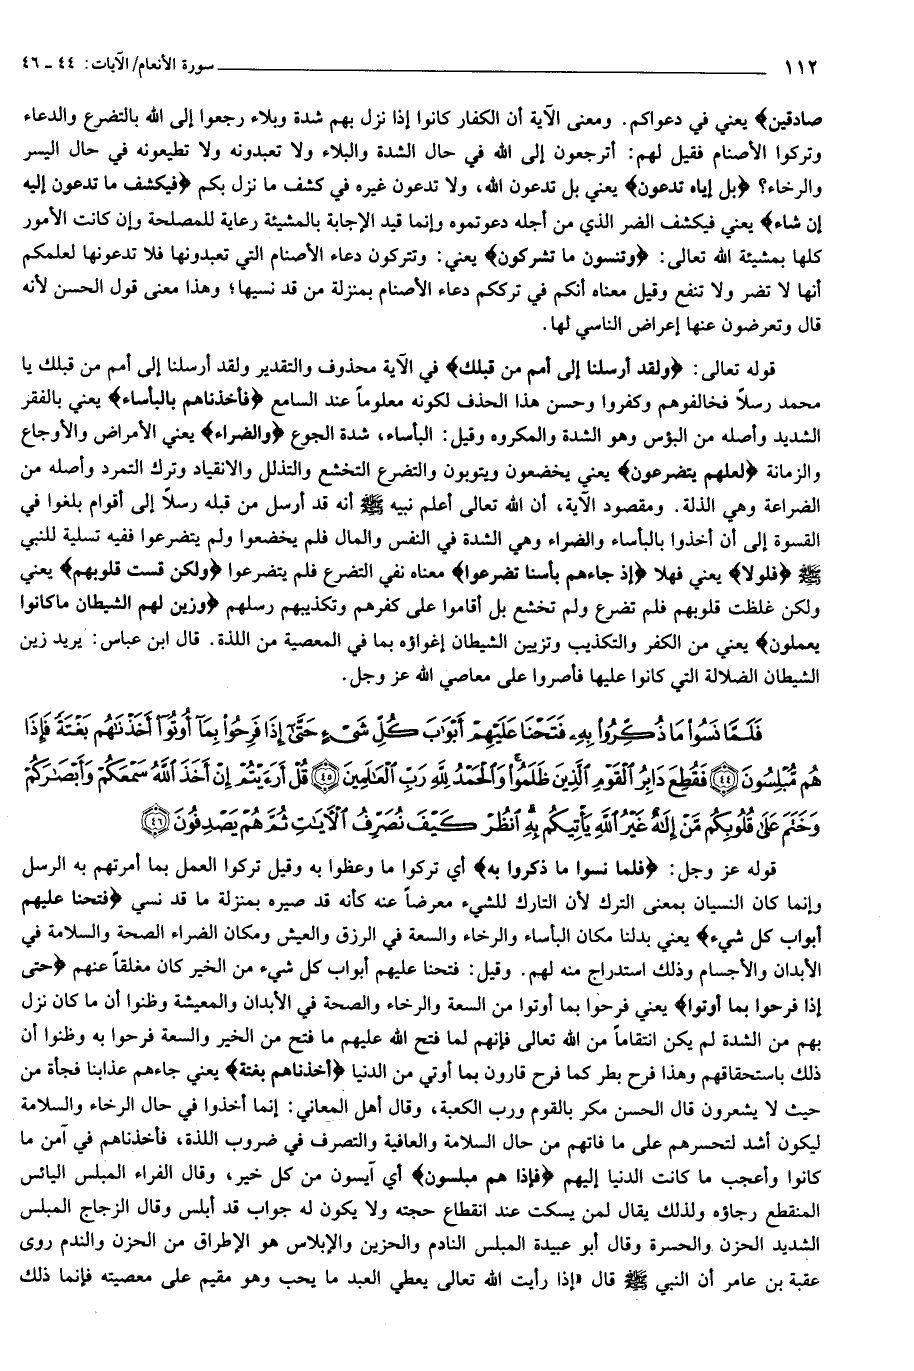 ١١٢ سورة الأنعام/ الآيات: ٤٤ ـ ٤٦
صادقين﴾ يعني في دعواكم. ومعنى الآية أن الكفار كانوا إذا نزل بهم شدة وبلاء رجعوا إلى الله بالتضرع والدعاء
وتركوا الأصنام فقيل لهم: أترجعون إلى الله في حال الشدة والبلاء ولا تعبدونه ولا تطيعونه في حال اليسر
والرخاء؟ ﴿بل إياه تدعون﴾ يعني بل تدعون الله، ولا تدعون غيره في كشف ما نزل بكم ﴿فيكشف ما تدعون إليه
إن شاء﴾ يعني فيكشف الضر الذي من أجله دعوتموه وإنما قيد الإجابة بالمشيئة رعاية للمصلحة وإن كانت الأمور
كلها بمشيئة الله تعالى: ﴿وتنسون ما تشركون﴾ يعني: وتتركون دعاء الأصنام التي تعبدونها فلا تدعونها لعلمكم
أنها لا تضر ولا تنفع وقيل معناه أنكم في ترككم دعاء الأصنام بمنزلة من قد نسيها؛ وهذا معنى قول الحسن لأنه
قال وتعرضون عنها إعراض الناسي لها.
قوله تعالى: ﴿ولقد أرسلنا إلى أمم من قبلك﴾ في الآية محذوف والتقدير ولقد أرسلنا إلى أمم من قبلك يا
محمد رسلاً فخالفوهم وكفروا وحسن هذا الحذف لكونه معلوماً عند السامع ﴿فأخذناهم بالبأساء﴾ يعني بالفقر
الشديد وأصله من البؤس وهو الشدة والمكروه وقيل: البأساء، شدة الجوع ﴿والضراء﴾ يعني الأمراض والأوجاع
والزمانة ﴿لعلهم يتضرعون﴾ يعني يخضعون ويتوبون والتضرع التخشع والتذلل والانقياد وترك التمرد وأصله من
الضراعة وهي الذلة. ومقصود الآية، أن الله تعالى أعلم نبيه ﷺ أنه قد أرسل من قبله رسلاً إلى أقوام بلغوا في
القسوة إلى أن أخذوا بالبأساء والضراء وهي الشدة في النفس والمال فلم يخضعوا ولم يتضرعوا ففيه تسلية للنبي
ﷺ ﴿فلولا﴾ يعني فهلا ﴿إذ جاءهم بأسنا تضرعوا﴾ معناه نفي التضرع فلم يتضرعوا ﴿ولكن قست قلوبهم﴾ يعني
ولكن غلظت قلوبهم فلم تضرع ولم تخشع بل أقاموا على كفرهم وتكذيبهم رسلهم ﴿وزين لهم الشيطان ماكانوا
يعملون﴾ يعني من الكفر والتكذيب وتزيين الشيطان إغواؤه بما في المعصية من اللذة. قال ابن عباس: يريد زين
الشيطان الضلالة التي كانوا عليها فأصروا على معاصي الله عز وجل.
فَلَمَّا نَسُوا مَا ذُكِّرُوا بِهِۦ فَتَحْنَا عَلَيْهِمْ أَبْوَابَ كُلِّ شَىْءٍ حَتَّىٰٓ إِذَا فَرِحُوا بِمَآ أُوتُوٓا أَخَذْنَاهُم بَغْتَةً فَإِذَا
هُم مُّبْلِسُونَ ﴿٤٤﴾ فَقُطِعَ دَابِرُ ٱلْقَوْمِ ٱلَّذِينَ ظَلَمُوا۟ وَٱلْحَمْدُ لِلَّهِ رَبِّ ٱلْعَالَمِينَ ﴿٤٥﴾ قُلْ أَرَءَيْتُمْ إِنْ أَخَذَ ٱللَّهُ سَمْعَكُمْ وَأَبْصَارَكُمْ
وَخَتَمَ عَلَىٰ قُلُوبِكُم مَّنْ إِلَٰهٌ غَيْرُ ٱللَّهِ يَأْتِيكُم بِهِ ٱنظُرْ كَيْفَ نُصَرِّفُ ٱلْآيَاتِ ثُمَّ هُمْ يَصْدِفُونَ ﴿٤٦﴾
قوله عز وجل: ﴿فلما نسوا ما ذكروا به﴾ أي تركوا ما وعظوا به وقيل تركوا العمل بما أمرتهم به الرسل
وإنما كان النسيان بمعنى الترك لأن التارك للشيء معرضاً عنه كأنه قد صيره بمنزلة ما قد نسي ﴿فتحنا عليهم
أبواب كل شيء﴾ يعني بدلنا مكان البأساء والرخاء والسعة في الرزق والعيش ومكان الضراء الصحة والسلامة في
الأبدان والأجسام وذلك استدراج منه لهم. وقيل: فتحنا عليهم أبواب كل شيء من الخير كان مغلقاً عنهم ﴿حتى
إذا فرحوا بما أوتوا﴾ يعني فرحوا بما أوتوا من السعة والرخاء والصحة في الأبدان والمعيشة وظنوا أن ما كان نزل
بهم من الشدة لم يكن انتقاماً من الله تعالى فإنهم لما فتح الله عليهم ما فتح من الخير والسعة فرحوا به وظنوا أن
ذلك باستحقاقهم وهذا فرح بطر كما فرح قارون بما أوتي من الدنيا ﴿أخذناهم بغتة﴾ يعني جاءهم عذابنا فجأة من
حيث لا يشعرون قال الحسن مكر بالقوم ورب الكعبة، وقال أهل المعاني: إنما أخذوا في حال الرخاء والسلامة
ليكون أشد لتحسرهم على ما فاتهم من حال السلامة والعافية والتصرف في ضروب اللذة، فأخذناهم في آمن ما
كانوا وأعجب ما كانت الدنيا إليهم ﴿فإذا هم مبلسون﴾ أي آيسون من كل خير، وقال الفراء المبلس اليائس
المنقطع رجاؤه ولذلك يقال لمن يسكت عند انقطاع حجته ولا يكون له جواب قد أبلس وقال الزجاج المبلس
الشديد الحزن والحسرة وقال أبو عبيدة المبلس النادم والحزين والإبلاس هو الإطراق من الحزن والندم روى
عقبة بن عامر أن النبي ﷺ قال «إذا رأيت الله تعالى يعطي العبد ما يحب وهو مقيم على معصيته فإنما ذلك